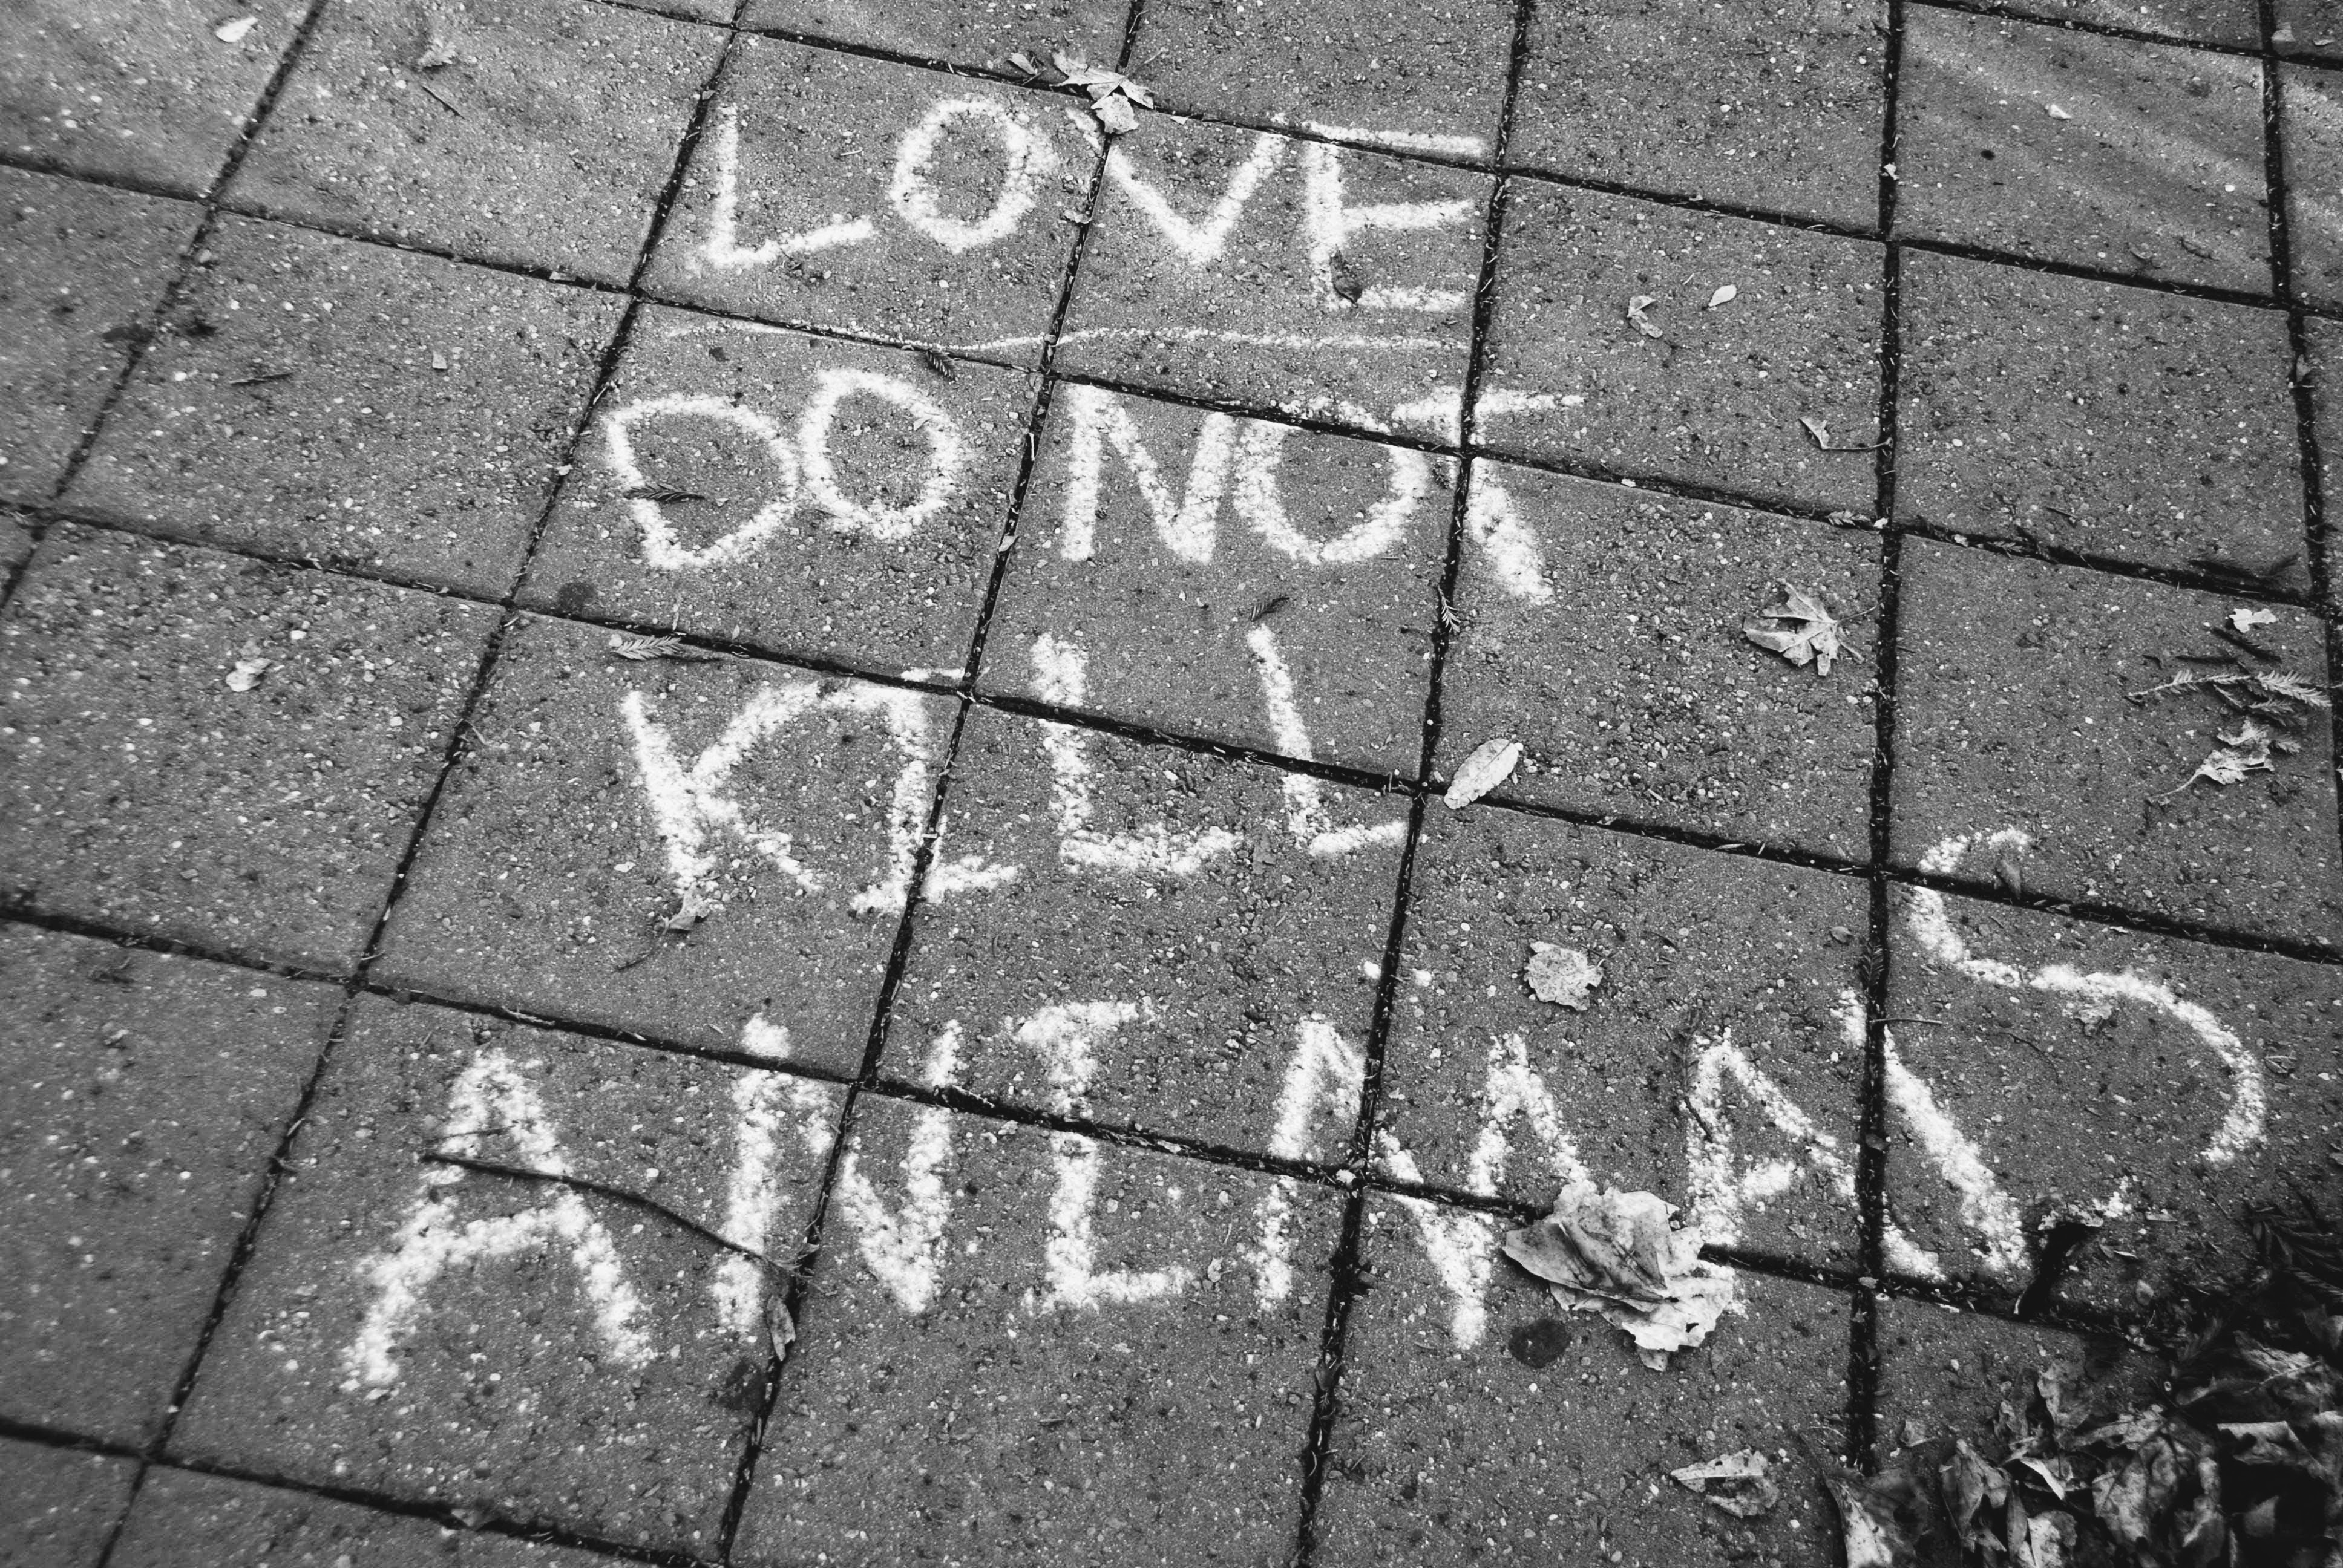 LOVE
DO NOT
KILL
ANIMALS